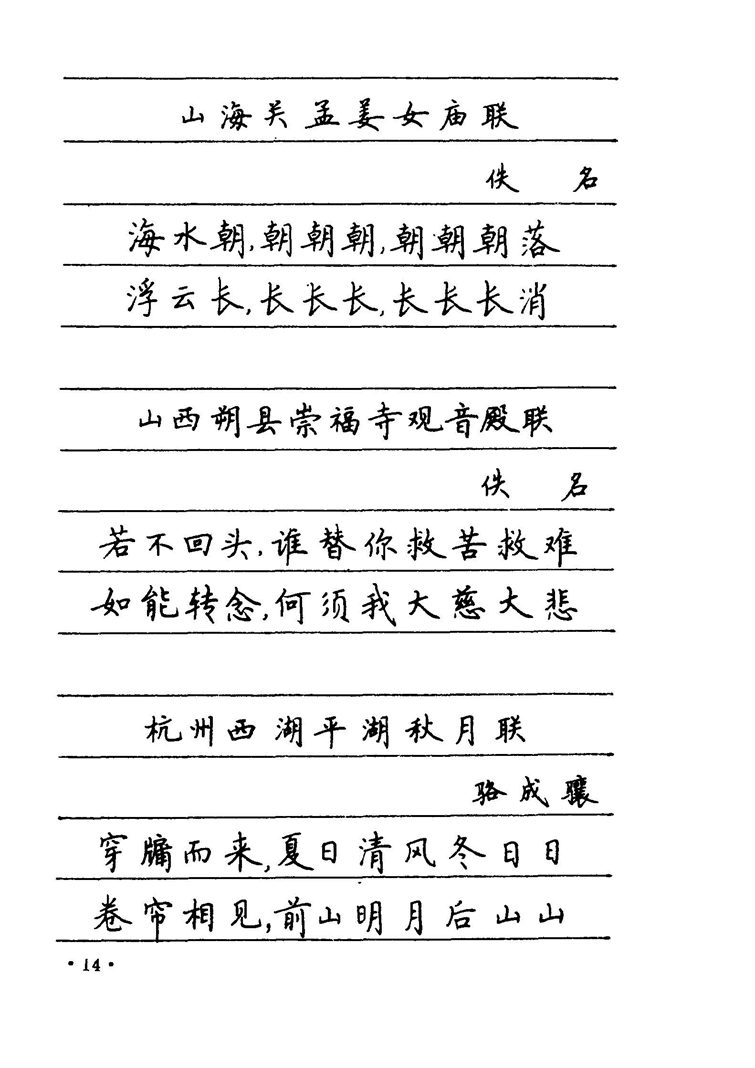 山海关孟姜女庙联
佚 名
海水朝,朝朝朝,朝朝朝落
浮云长,长长长,长长长消
山西朔县崇福寺观音殿联
佚 名
若不回头,谁替你救苦救难
如能转念,何须我大慈大悲
杭州西湖平湖秋月联
骆成骧
穿牖而来,夏日清风冬日日
卷帘相见,前山明月后山山
·14·